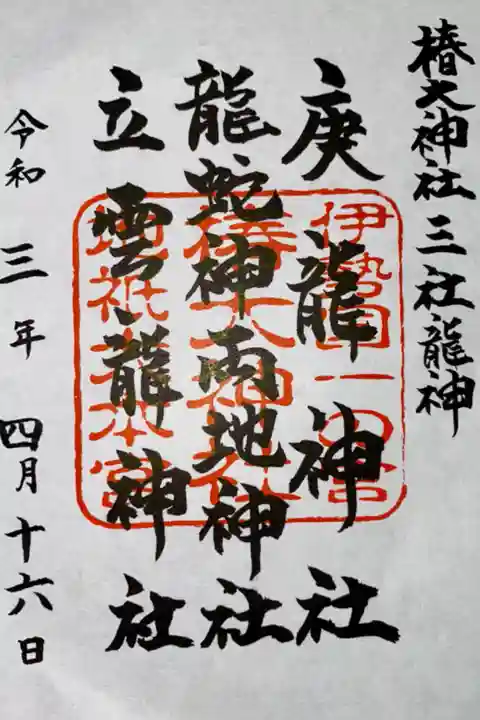 椿大神社三社龍神
庚龍神社
龍蛇神両地神社
立雲龍神社
令和三年四月十六日
伊勢国一の宮
椿大神社
地祇大本宮